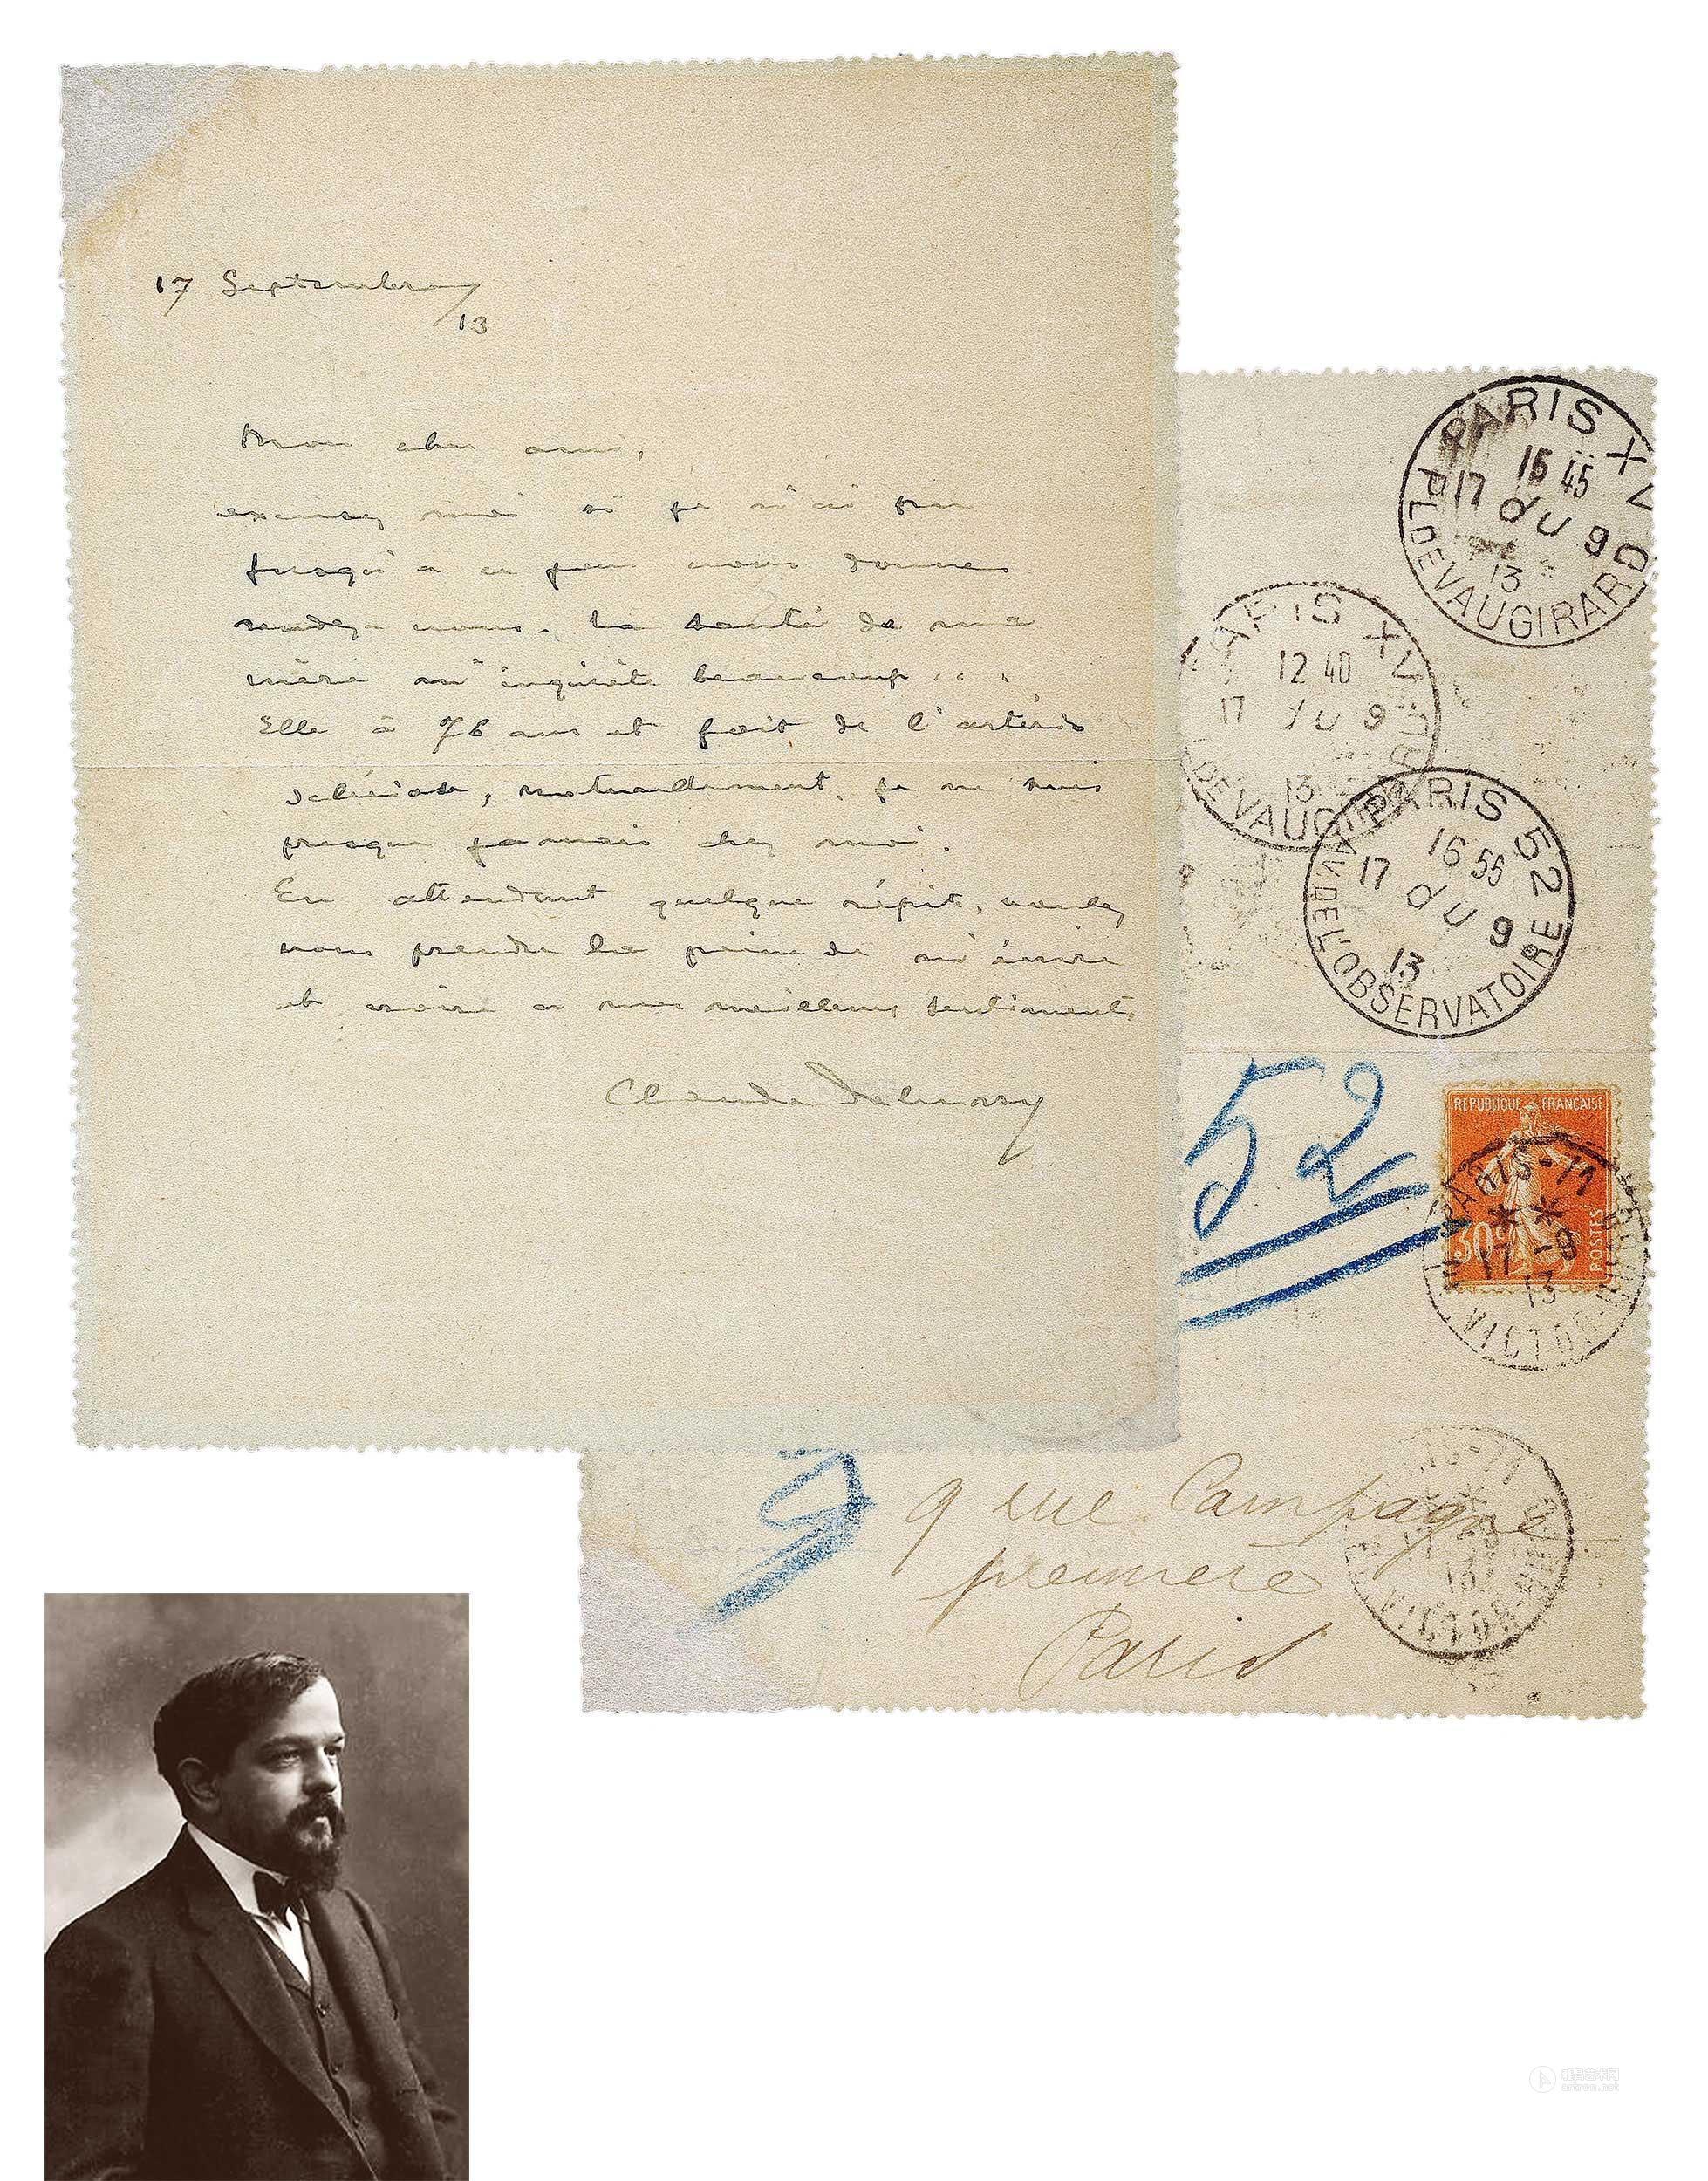 17 Septembre
/13
Mon cher ami,
excusez moi si je n'ai pu
jusqu'à ce jour vous donner
rendez-vous. La santé de ma
mère m'inquiète beaucoup...
Elle à 76 ans et fait de l'artério
sclérose, naturellement, je ne suis
presque jamais chez moi.
En attendant quelque répit, voulez
vous prendre la peine de m'écrire
et croire a mes meilleurs sentiments
Claude Debussy
PARIS XV
16 45
17 du 9
13
PL. DE VAUGIRARD
PARIS XV
12 40
17 du 9
13
PL. DE VAUGIRARD
PARIS 52
16 55
17 du 9
13
AV. DE L'OBSERVATOIRE
52
REPUBLIQUE FRANÇAISE
30c
POSTES
PARIS-71
* *
17-9
13
VICTOR-HUGO
9 rue Campagne
première
Paris
PARIS-71
13
VICTOR-HUGO